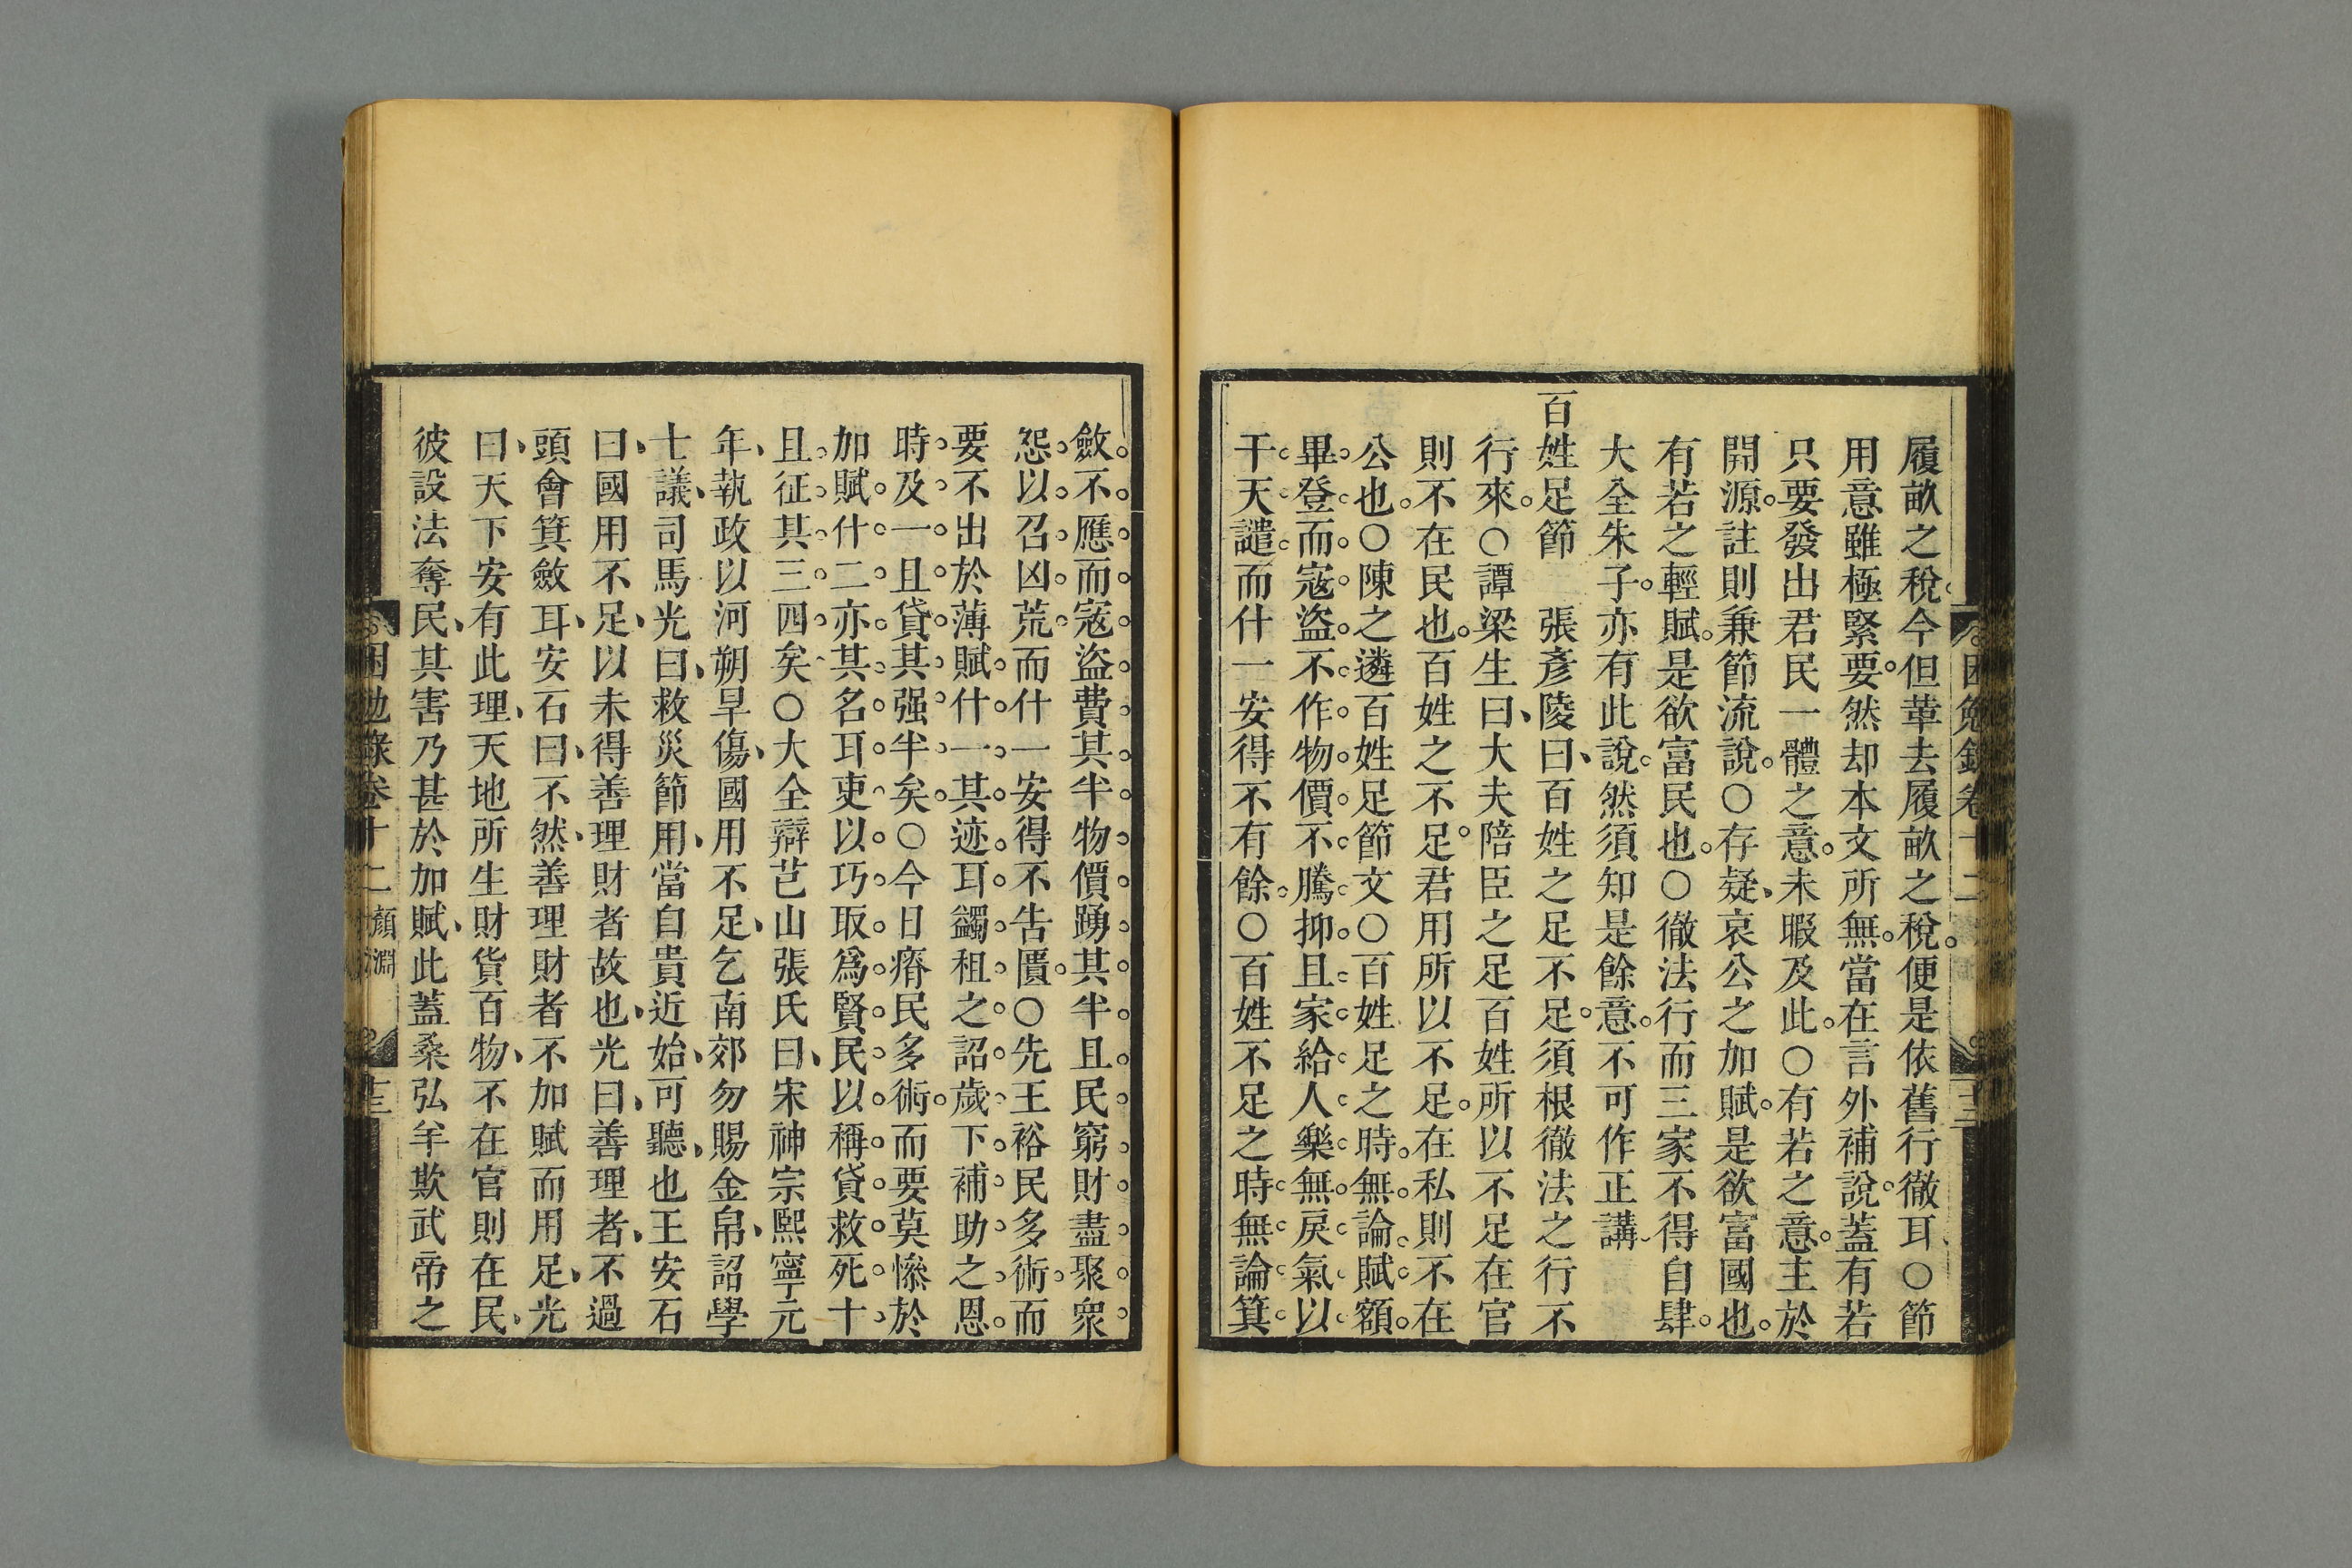 履畝之稅今但革去履畝之稅便是依舊行徹耳○節
用意雖極緊要然却本文所無當在言外補說蓋有若
只要發出君民一體之意未暇及此○有若之意主於
開源註則兼節流說○存疑哀公之加賦是欲富國也
有若之輕賦是欲富民也○徹法行而三家不得自肆
大全朱子亦有此說然須知是餘意不可作正講
百姓足節 張彥陵曰百姓之足不足須根徹法之行不
行來○譚梁生曰大夫陪臣之足百姓所以不足在官
則不在民也百姓之不足君用所以不足在私則不在
公也○陳之遴百姓足節文○百姓足之時無論賦額
畢登而寇盜不作物價不騰抑且家給人樂無戾氣以
干天譴而什一安得不有餘○百姓不足之時無論箕
斂不應而寇盜費其半物價踴其半且民窮財盡聚衆
怨以召凶荒而什一安得不吿匱○先王裕民多術而
要不出於薄賦什一其迹耳蠲租之詔歲下補助之恩
時及一且貸其强半矣○今日瘠民多術而要莫慘於
加賦什二亦其名耳吏以巧取爲賢民以稱貸救死十
且征其三四矣○大全辯芑山張氏曰宋神宗熙寧元
年執政以河朔旱傷國用不足乞南郊勿賜金帛詔學
士議司馬光曰救災節用當自貴近始可聽也王安石
曰國用不足以未得善理財者故也光曰善理者不過
頭會箕斂耳安石曰不然善理財者不加賦而用足光
曰天下安有此理天地所生財貨百物不在官則在民
彼設法奪民其害乃甚於加賦此蓋桑弘羊欺武帝之
困勉錄卷十二 顏淵 十三